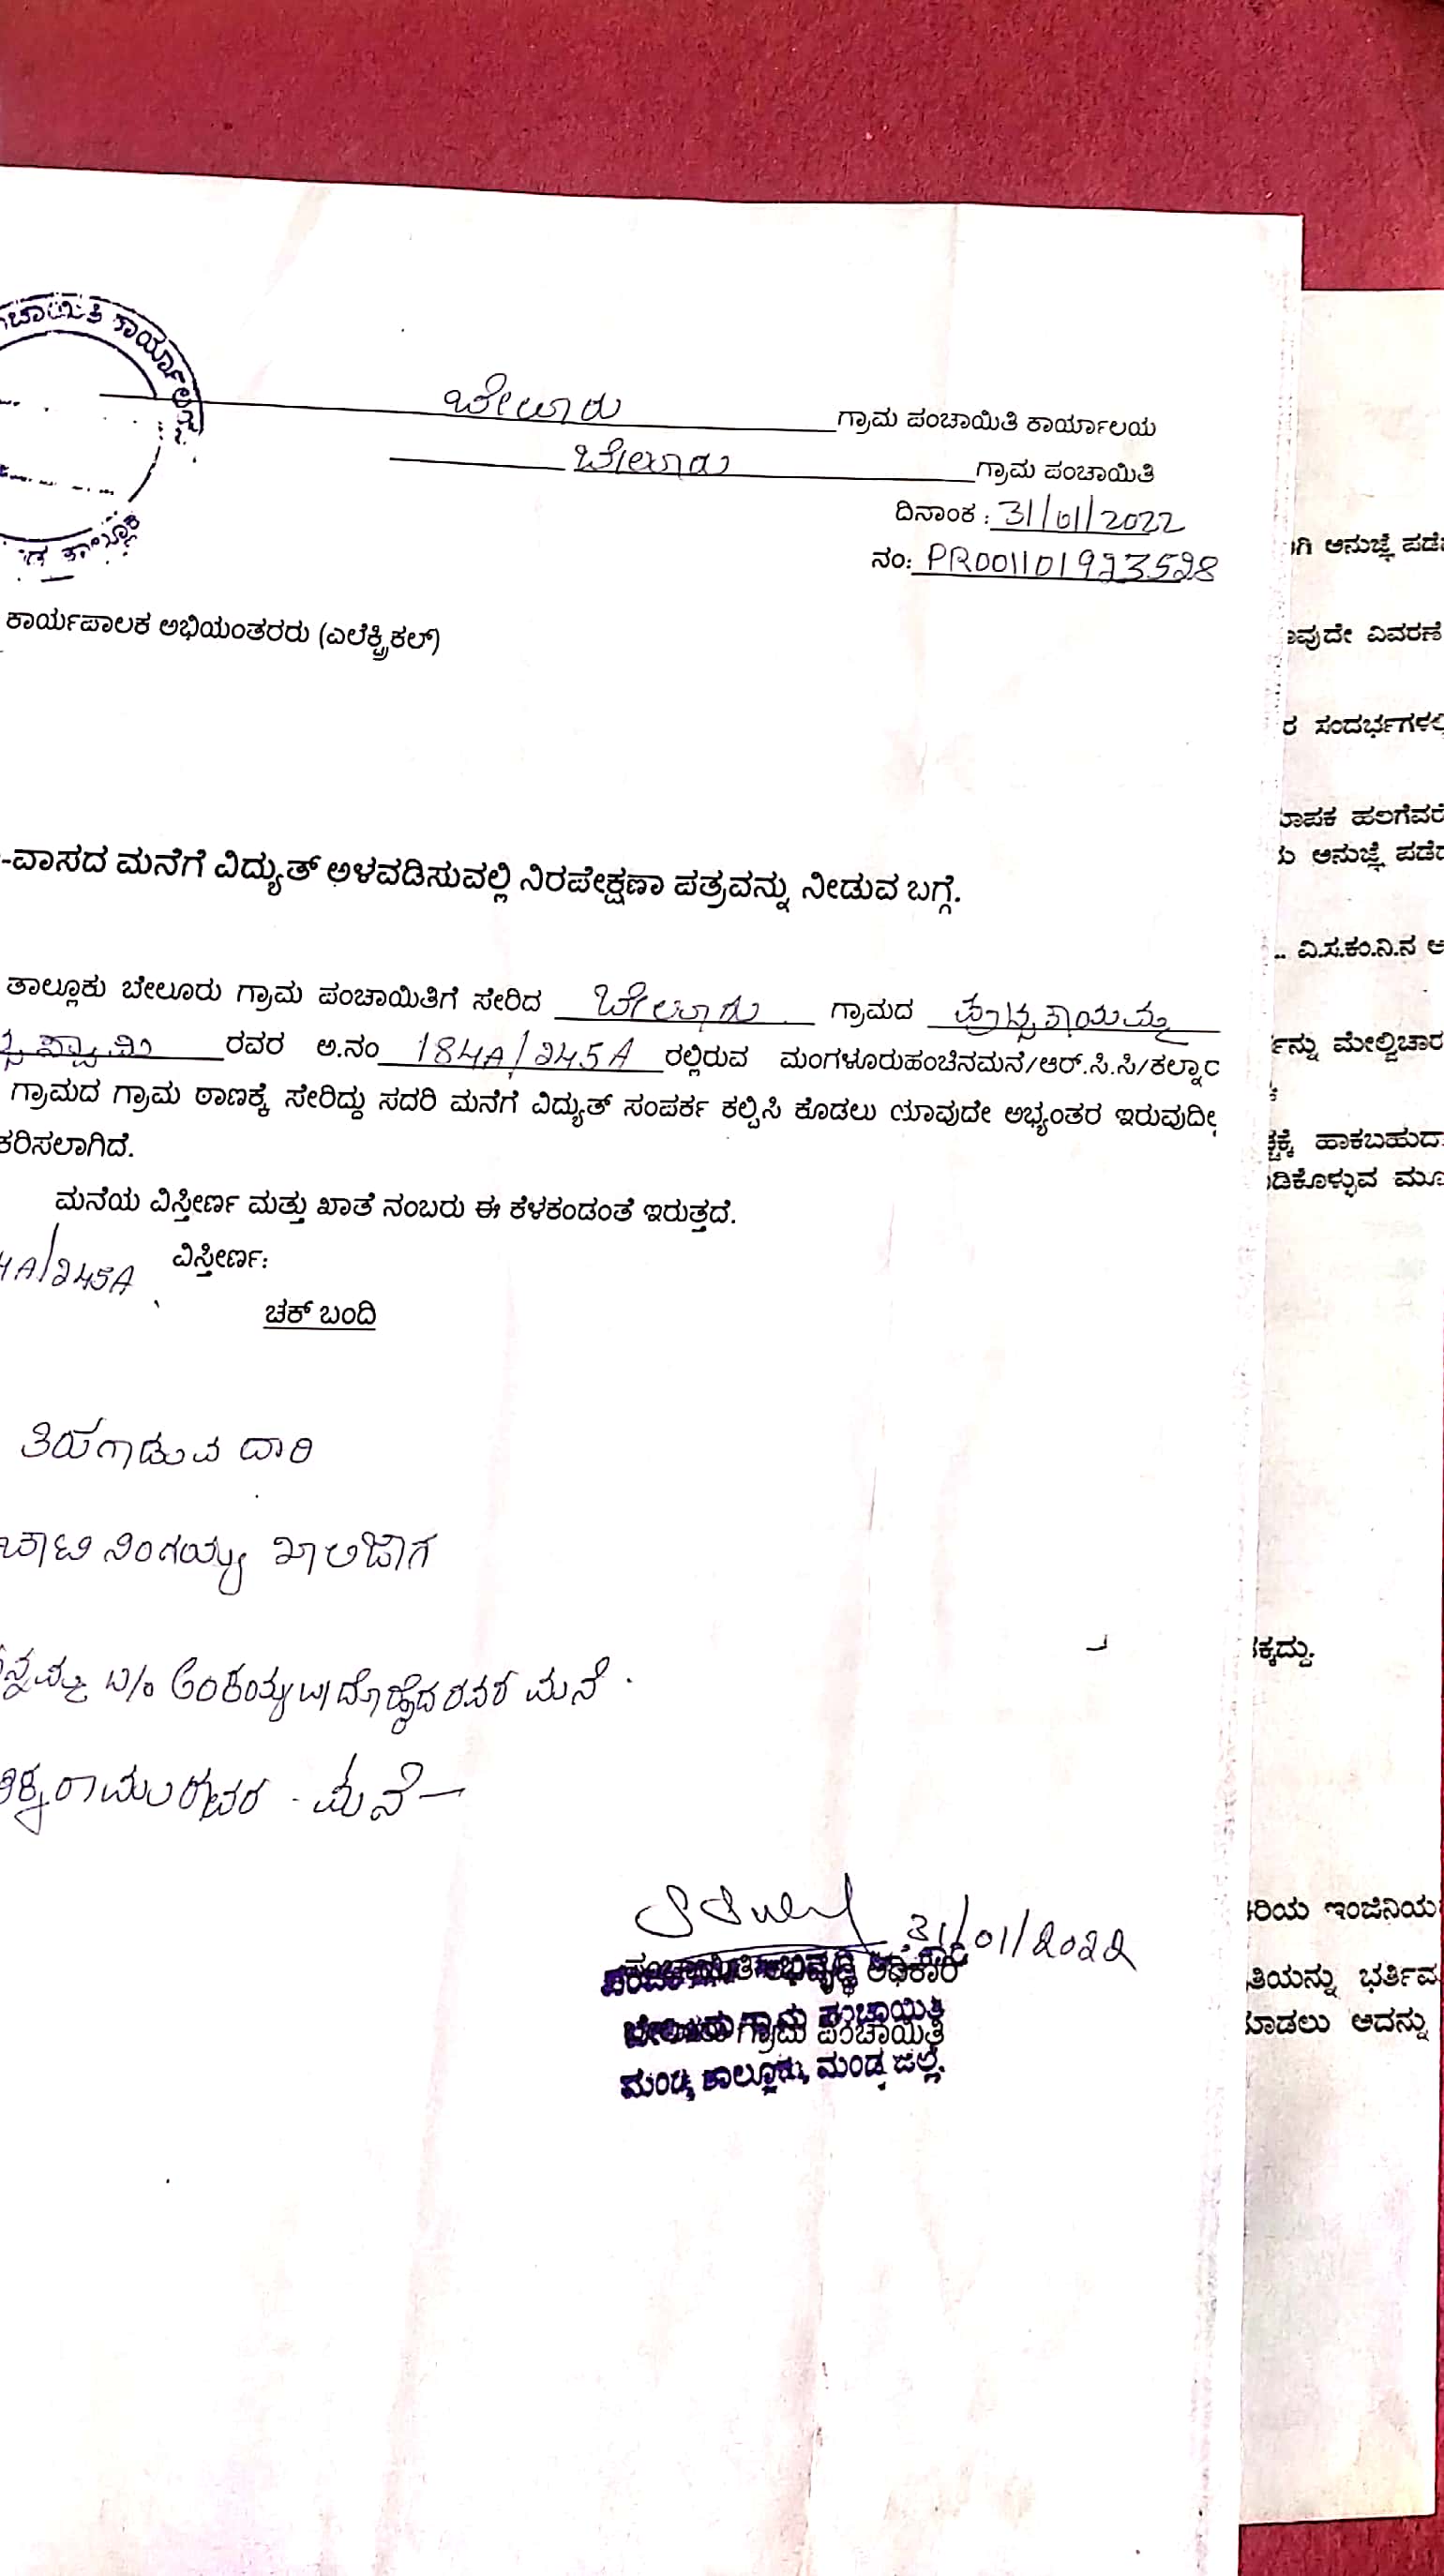 ಕಾರ್ಯಾಲಯ
ಬೇಲೂರು ಗ್ರಾಮ ಪಂಚಾಯಿತಿ ಕಾರ್ಯಾಲಯ
ಬೇಲೂರು ಗ್ರಾಮ ಪಂಚಾಯಿತಿ
ದಿನಾಂಕ : 31/01/2022
ನಂ: PR001101923528
ಕಾರ್ಯಪಾಲಕ ಅಭಿಯಂತರರು (ಎಲೆಕ್ಟ್ರಿಕಲ್)
-ವಾಸದ ಮನೆಗೆ ವಿದ್ಯುತ್ ಅಳವಡಿಸುವಲ್ಲಿ ನಿರಪೇಕ್ಷಣಾ ಪತ್ರವನ್ನು ನೀಡುವ ಬಗ್ಗೆ.
ತಾಲ್ಲೂಕು ಬೇಲೂರು ಗ್ರಾಮ ಪಂಚಾಯಿತಿಗೆ ಸೇರಿದ ಬೇಲೂರು ಗ್ರಾಮದ ಪುಟ್ಟತಾಯಮ್ಮ
ರವರ ಅ.ನಂ 184A/245A ರಲ್ಲಿರುವ ಮಂಗಳೂರುಹಂಚಿನಮನೆ/ಆರ್.ಸಿ.ಸಿ/ಕಲ್ನಾರ
ಗ್ರಾಮದ ಗ್ರಾಮ ಠಾಣಕ್ಕೆ ಸೇರಿದ್ದು ಸದರಿ ಮನೆಗೆ ವಿದ್ಯುತ್ ಸಂಪರ್ಕ ಕಲ್ಪಿಸಿ ಕೊಡಲು ಯಾವುದೇ ಅಭ್ಯಂತರ ಇರುವುದಿ
ಕರಿಸಲಾಗಿದೆ.
ಮನೆಯ ವಿಸ್ತೀರ್ಣ ಮತ್ತು ಖಾತೆ ನಂಬರು ಈ ಕೆಳಕಂಡಂತೆ ಇರುತ್ತದೆ.
4A/245A ವಿಸ್ತೀರ್ಣ:
ಚಕ್ ಬಂದಿ
ತಿರುಗಾಡುವ ದಾರಿ
ನಿಂಗಯ್ಯ ಖಾಲಿಜಾಗ
ರವರ ಮನೆ
ರಾಮುರವರ ಮನೆ
31/01/2022
ಪಂಚಾಯಿತಿ ಅಭಿವೃದ್ಧಿ ಅಧಿಕಾರಿ
ಬೇಲೂರು ಗ್ರಾಮ ಪಂಚಾಯಿತಿ
ಮಂಡ್ಯ ತಾಲ್ಲೂಕು, ಮಂಡ್ಯ ಜಿಲ್ಲೆ.
ಗಿ ಅನುಜ್ಞೆ ಪಡೆ
ವುದೇ ವಿವರಣೆ
ರ ಸಂದರ್ಭಗಳಲ್ಲಿ
ಮಾಪಕ ಹಲಗೆವರೆ
ಅನುಜ್ಞೆ ಪಡೆದ
.. ವಿ.ಸ.ಕಂ.ನಿ.ನ ಅ
ನ್ನು ಮೇಲ್ವಿಚಾರ
ಹಾಕಬಹುದಾ
ಡಿಕೊಳ್ಳುವ ಮೂ
ತಕ್ಕದ್ದು.
ಕಿರಿಯ ಇಂಜಿನಿಯ
ತಿಯನ್ನು ಭರ್ತಿಮ
ಮಾಡಲು ಅದನ್ನು